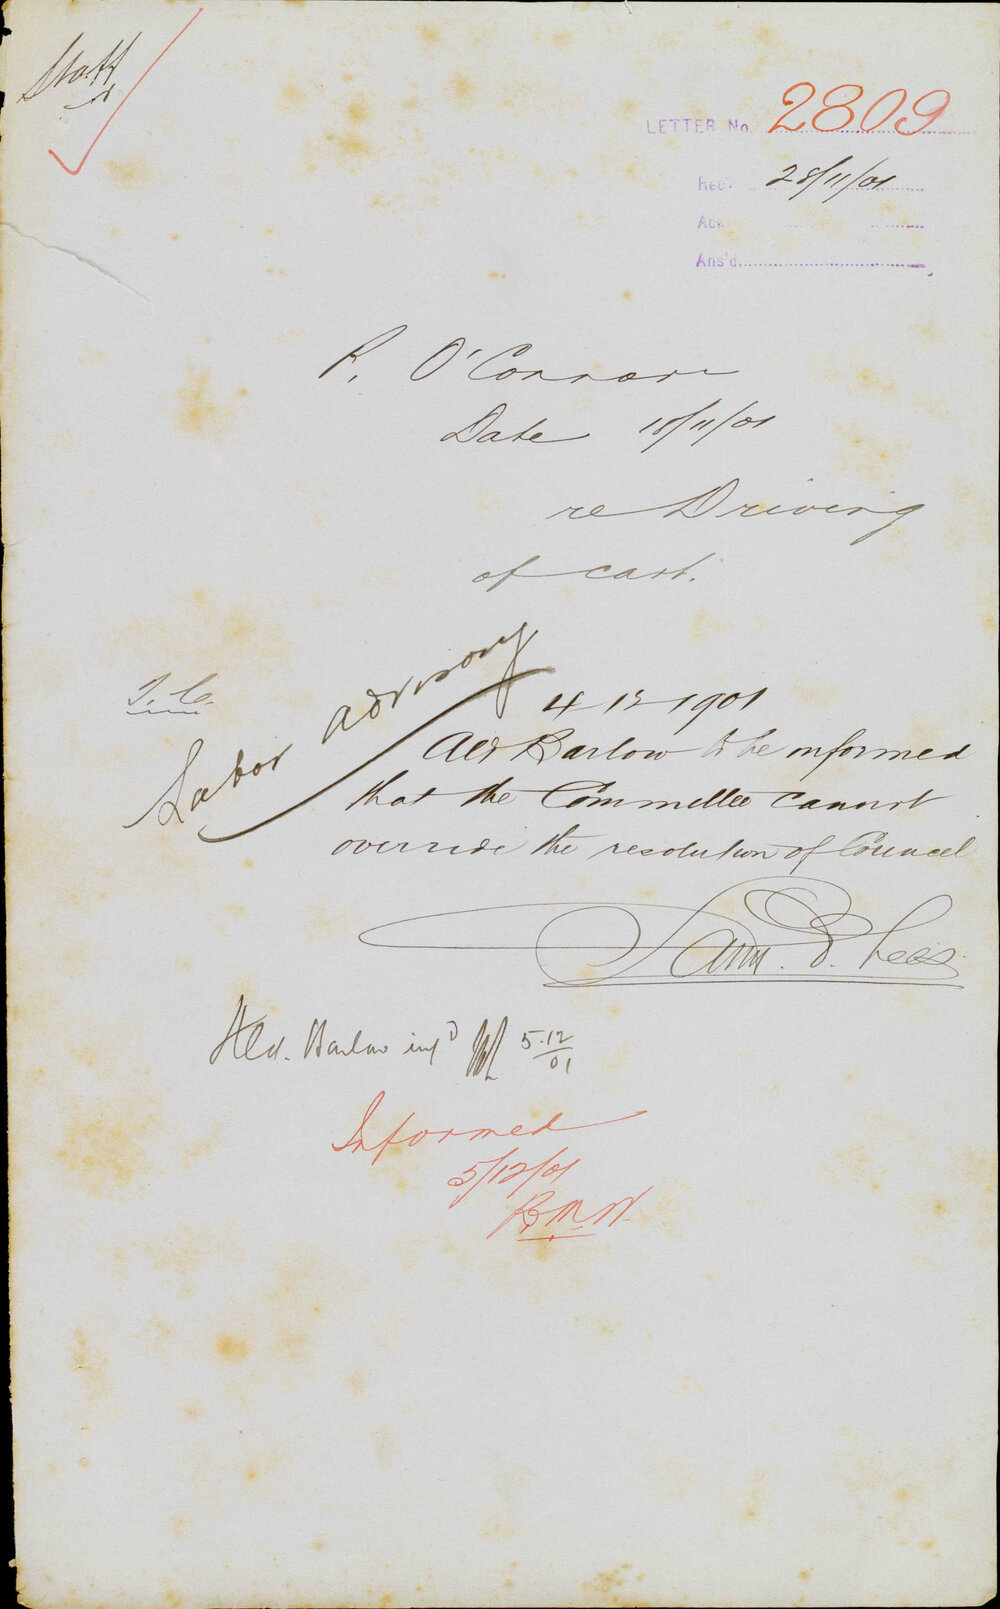 Staff
LETTER No. 2809
Rec'd 28/11/01
Ack
Ans'd
P. O'Connor
Date 18/11/01
re Driving
of cart.
T. C.
Labor Advisory
4 12 1901
Ald Barlow to be informed
that the Committee cannot
override the resolution of Council
Saml. E. Lees
Ald. Barlow infd 5.12/01
Informed
5/12/01